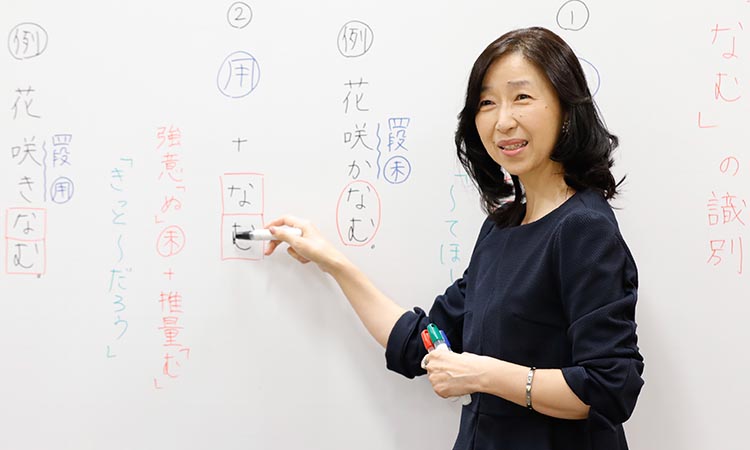 「なむ」の識別
①
例 花咲かなむ。
四段 未
②
用+なむ
強意「ぬ」未+推量「む」
「きっと〜だろう」
例 花咲きなむ。
四段 用